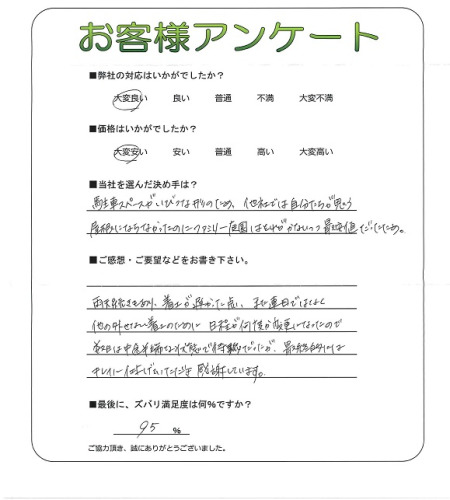 お客様アンケート
■弊社の対応はいかがでしたか？
大変良い 良い 普通 不満 大変不満
■価格はいかがでしたか？
大変安い 安い 普通 高い 大変高い
■当社を選んだ決め手は？
駐車スペースがいびつな形のため、他社では自分たちが思う
にならなかったのにファミリー庭園は
■ご感想・ご要望などをお書き下さい。
雨天続きもあり、着工が遅かった点、また連日ではなく
他の外せない着工のために日程が何度か変更になったので
中途半端な状態で だったが、最終的には
キレイに仕上げていただき感謝しています。
■最後に、ズバリ満足度は何%ですか？
95 %
ご協力頂き、誠にありがとうございました。